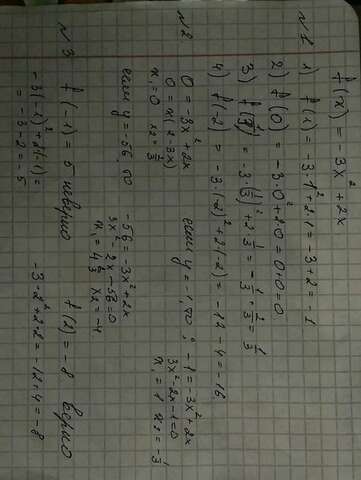 f(x) = -3x² + 2x
№1 1) f(1) = -3·1² + 2·1 = -3 + 2 = -1
2) f(0) = -3·0² + 2·0 = 0 + 0 = 0
3) f(1/3) = -3·(1/3)² + 2·1/3 = -1/3 + 2/3 = 1/3
4) f(-2) = -3·(-2)² + 2·(-2) = -12 - 4 = -16
№2 0 = -3x² + 2x
0 = x(2-3x)
x₁ = 0 x₂ = 2/3
если y = -1, то: -1 = -3x² + 2x
3x² - 2x - 1 = 0
x₁ = 1 x₂ = -1/3
если y = -56 то -56 = -3x² + 2x
3x² - 2x - 56 = 0
x₁ = 4 2/3 x₂ = -4
№3 f(-1) = 5 неверно f(2) = -8 верно
-3·(-1)² + 2·(-1) = -3·2² + 2·2 = -12 + 4 = -8
= -3 - 2 = -5